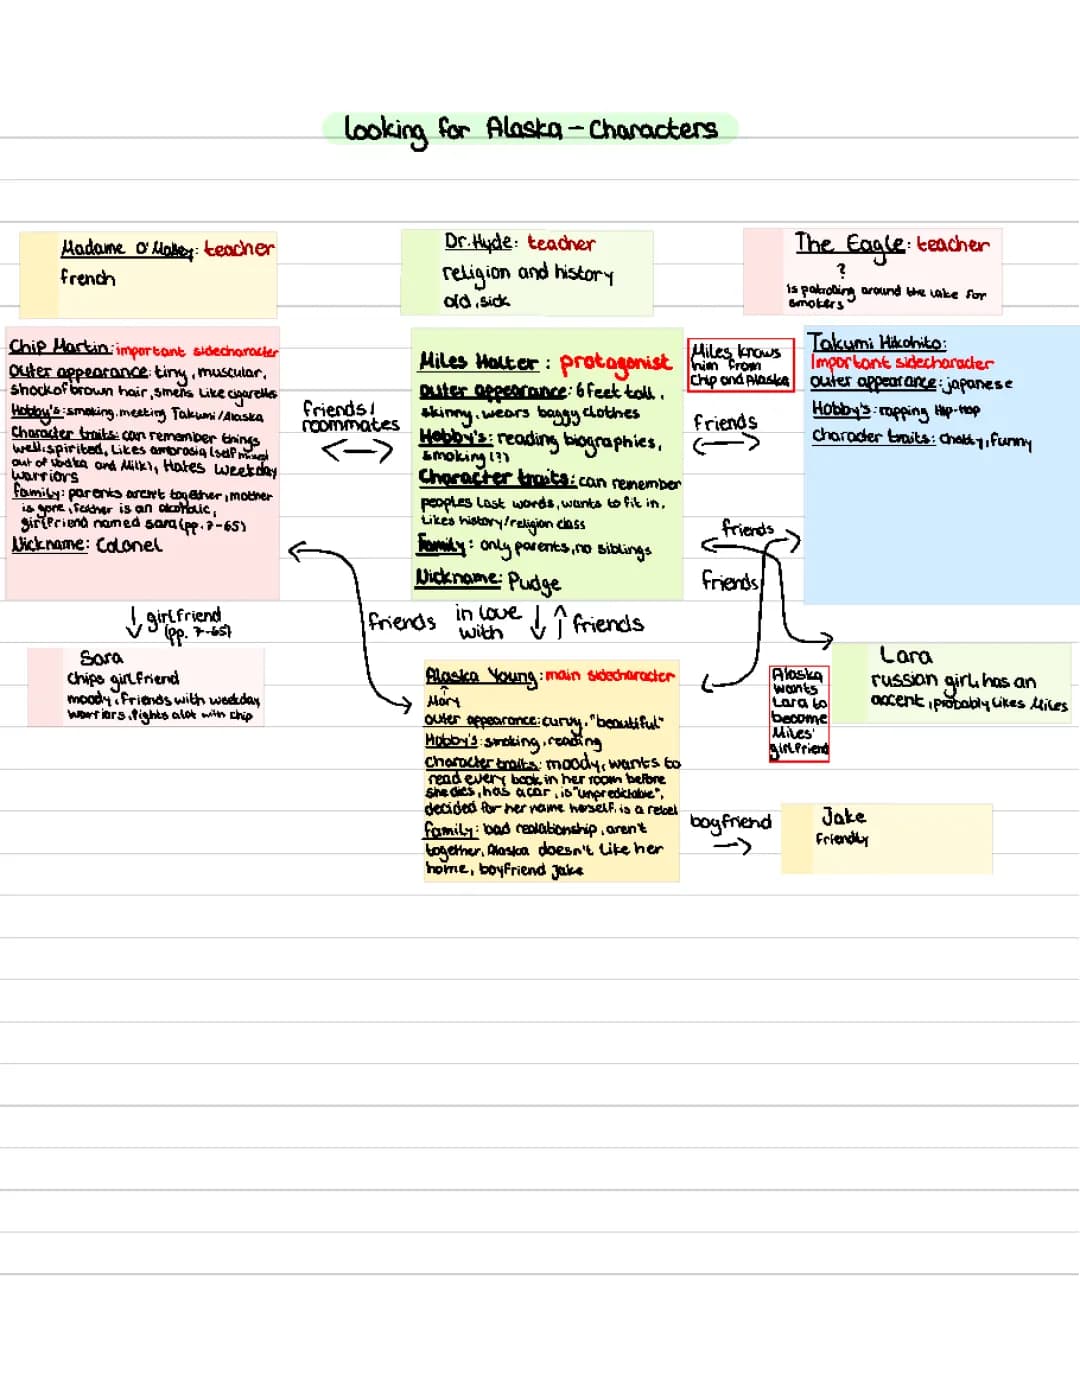 Looking for Alaska - Characters
Madame O'Malley: teacher
french
Dr. Hyde: teacher
religion and history
old, sick
The Eagle: teacher
?
is patroling around the lake for
smokers
Chip Martin: important sidecharacter
Outer appearance: tiny, muscular,
shock of brown hair, smells like cigarettes
Hobby's: smoking, meeting Takumi/Alaska
Character traits: can remember things
well, spirited, Likes ambrosia (self mixed
out of Vodka and Milk), Hates Weekday
warriors
family: parents aren't together, mother
is gone, father is an alcoholic,
girlfriend named Sara (pp. 7-65)
Nickname: Colonel
friends/
roommates
Miles Halter: protagonist
outer appearance: 6 feet tall,
skinny, wears baggy clothes
Hobby's: reading biographies,
smoking (?)
Character traits: can remember
peoples last words, wants to fit in,
Likes history/religion class
Family: only parents, no siblings
Nickname: Pudge
Miles knows
him from
Chip and Alaska
friends
Takumi Hikohito:
Important sidecharacter
outer appearance: japanese
Hobby's: rapping Hip-Hop
charader traits: chatty, funny
friends
friends
girlfriend
(pp. 7-65)
friends
in love
with
friends
Sara
Chips girlfriend
moody, friends with weekday
warriors, fights alot with chip
Alaska Young: main sidecharacter
Mary
outer appearance: curvy, "beautiful"
Hobby's: smoking, reading
Character traits: moody, wants to
read every book in her room before
she dies, has a car, is "unpredictable",
decided for her name herself, is a rebel
family: bad realationship, aren't
together, Alaska doesn't like her
home, boyfriend Jake
Alaska
wants
Lara to
become
Miles'
girlfriend
Lara
russian girl, has an
accent, probably likes Miles
boyfriend
Jake
Friendly